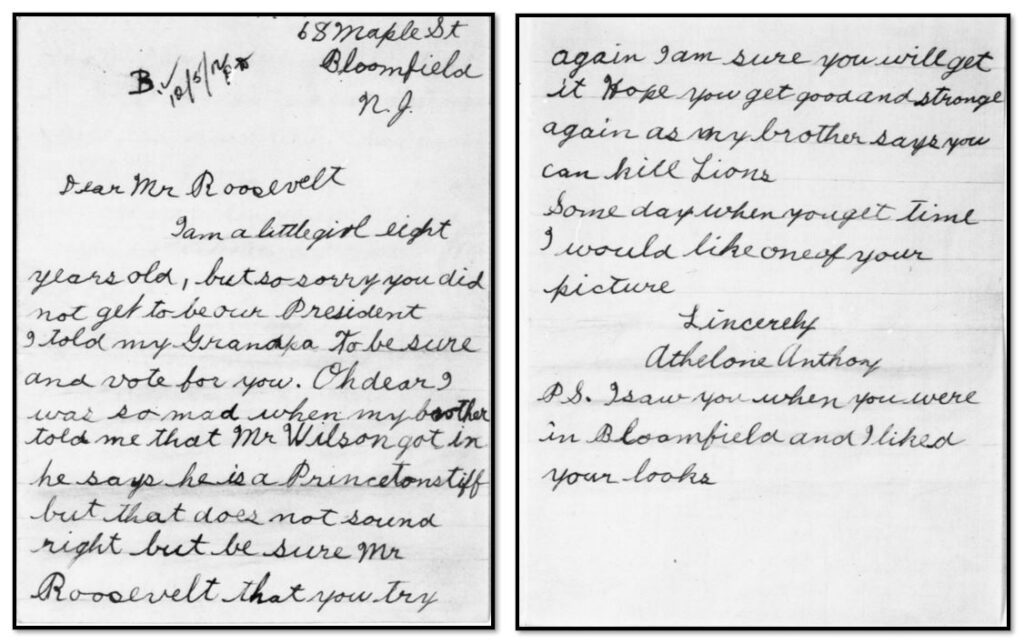 68 Maple St
Bloomfield
N.J.
B.
Dear Mr Roosevelt
I am a little girl eight
years old, but so sorry you did
not get to be our President
I told my Grandpa To be sure
and vote for you. Oh dear I
was so mad when my brother
told me that Mr Wilson got in
he says he is a Princeton stiff
but that does not sound
right but be sure Mr
Roosevelt that you try
again I am sure you will get
it Hope you get good and stronge
again as my brother says you
can kill Lions
Some day when you get time
I would like one of your
picture
Sincerely
Athelone Anthony
P.S. I saw you when you were
in Bloomfield and I liked
your looks